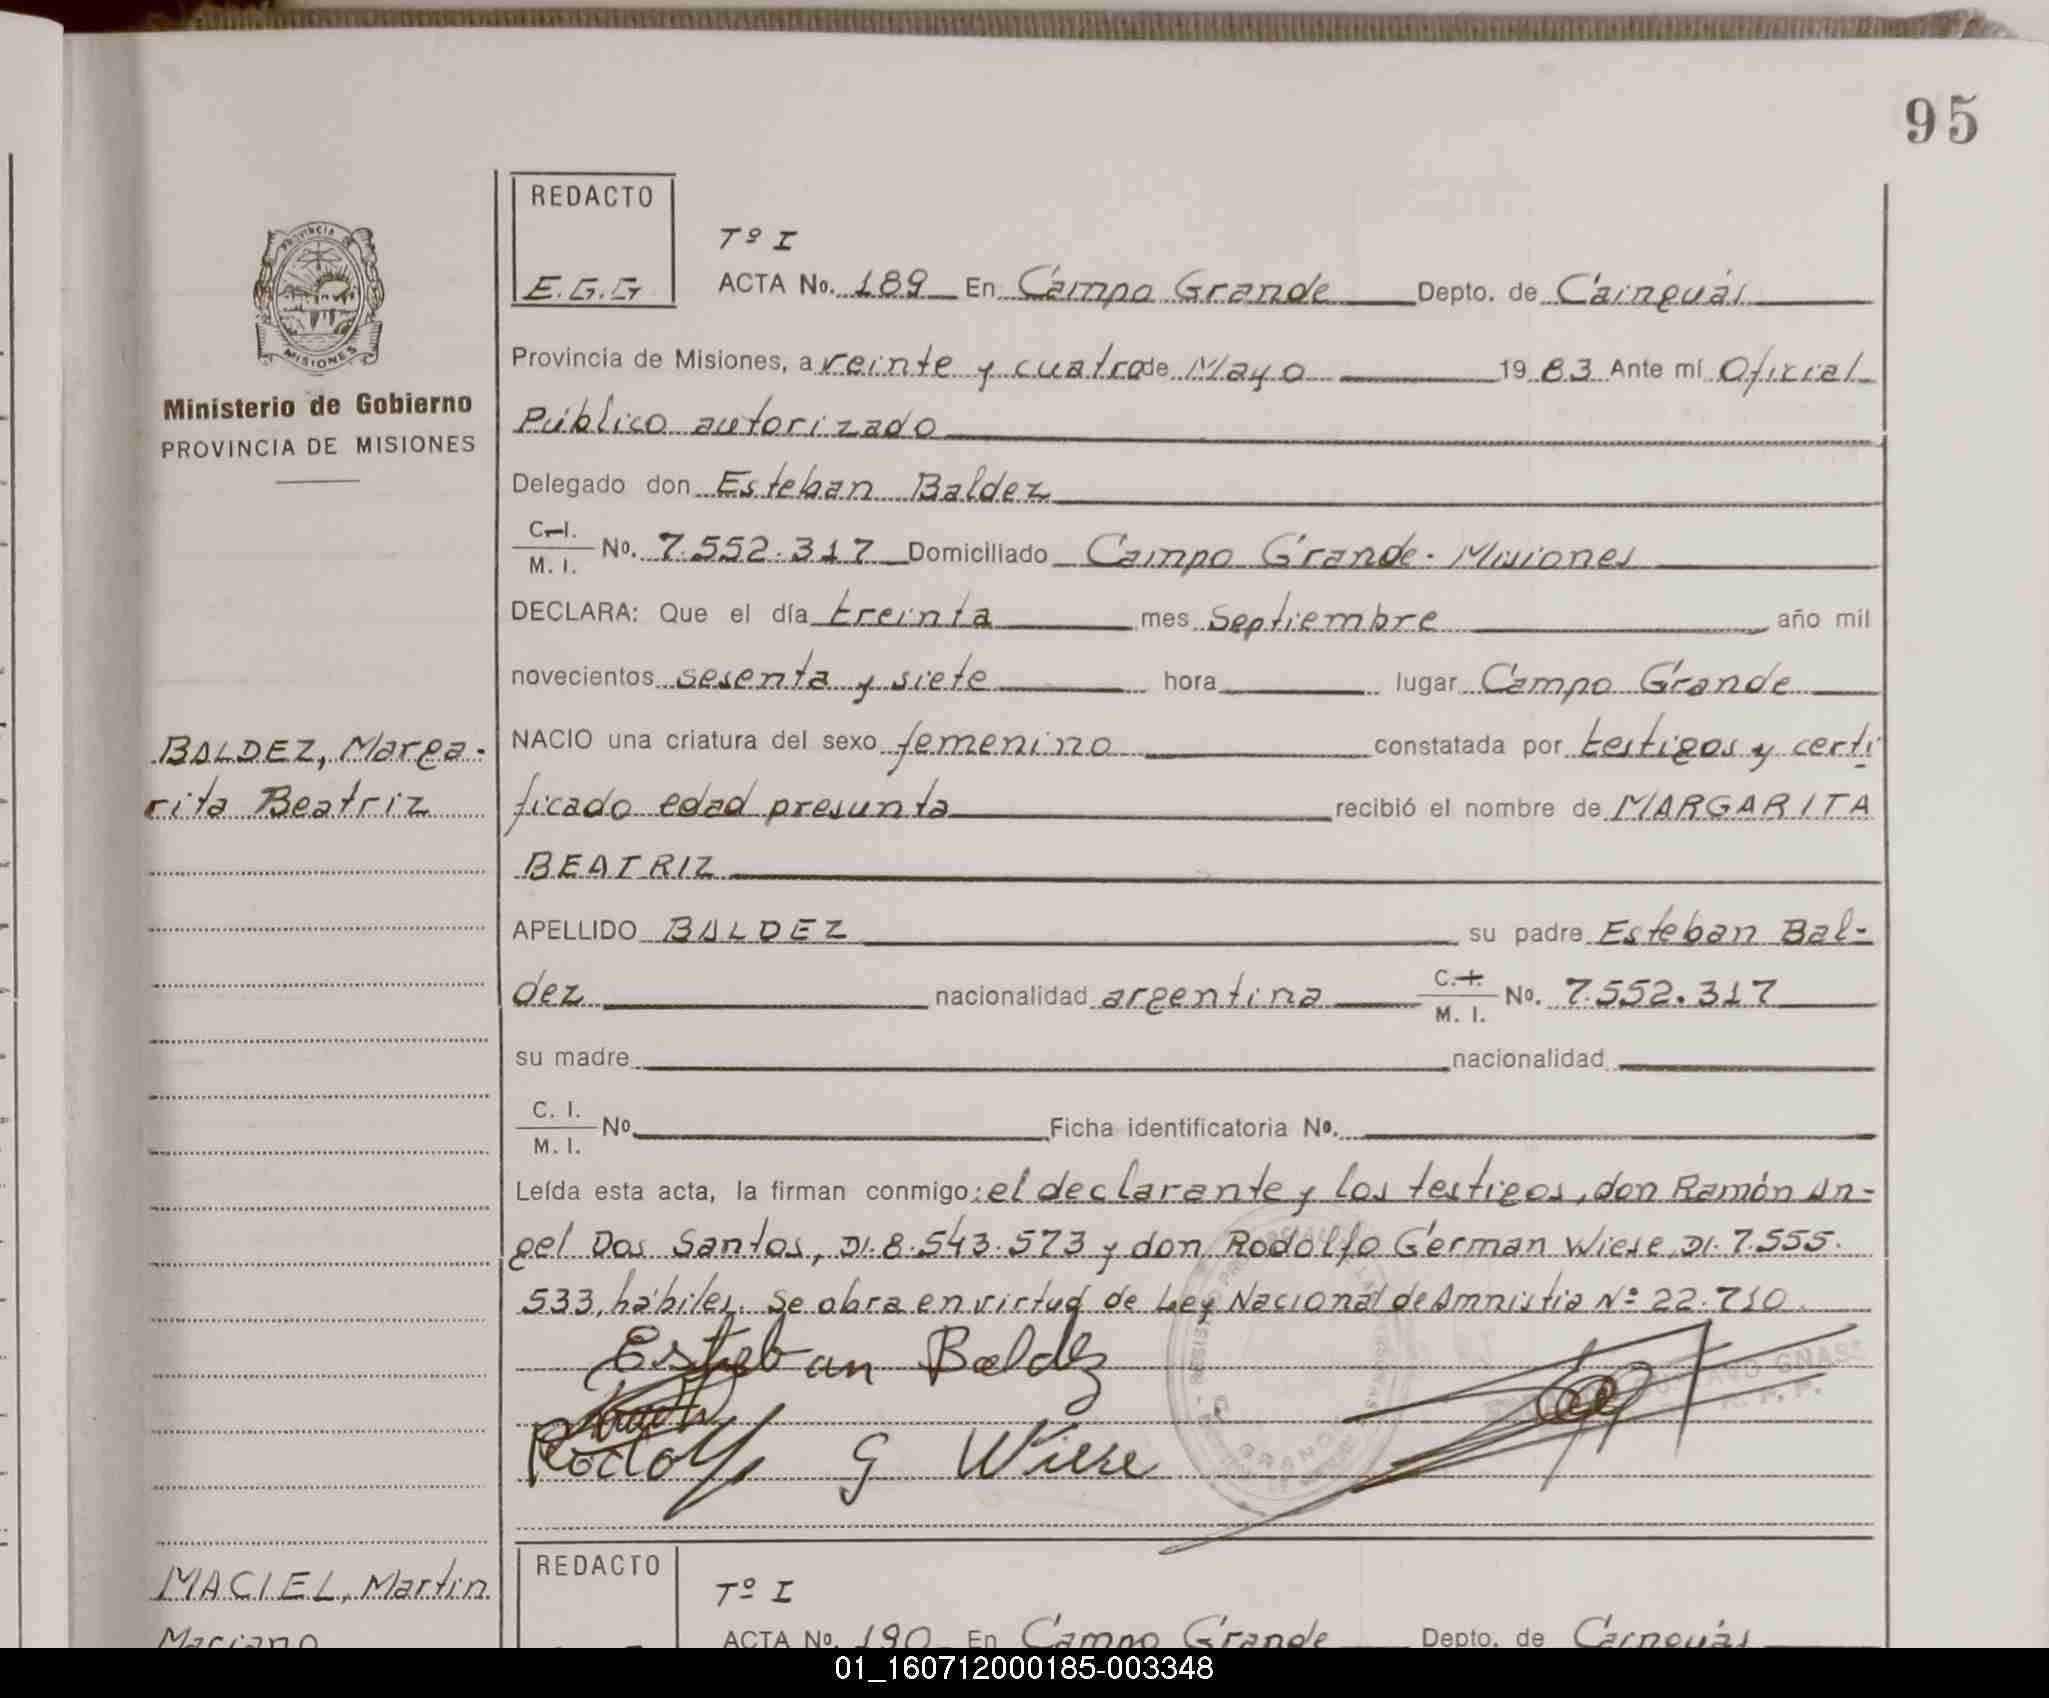 95
REDACTO
E.G.G
Tº I
ACTA No. 189 En Campo Grande Depto. de Cainguás
Provincia de Misiones, a veinte y cuatro de Mayo 19 83 Ante mí Oficial
Público autorizado
Delegado don Esteban Baldez
C.I. M. I. No. 7.552.317 Domiciliado Campo Grande - Misiones
DECLARA: Que el día treinta mes Septiembre año mil
novecientos sesenta y siete hora lugar Campo Grande
NACIO una criatura del sexo femenino constatada por testigos y certi
ficado edad presunta recibió el nombre de MARGARITA
BEATRIZ
APELLIDO BALDEZ su padre Esteban Bal-
dez nacionalidad argentina C.I. M. I. No. 7.552.317
su madre nacionalidad
C. I. M. I. No. Ficha identificatoria No.
Leída esta acta, la firman conmigo: el declarante y los testigos, don Ramón An-
gel Dos Santos, DI. 8.543.573 y don Rodolfo German Wiese, DI. 7.555.
533, hábiles. Se obra en virtud de Ley Nacional de Amnistia Nº 22.710.
Esteban Baldez
Rodolfo G Wiese
PROVINCIA
MISIONES
Ministerio de Gobierno
PROVINCIA DE MISIONES
BALDEZ, Marga-
rita Beatriz
MACIEL, Martin
Mariano
REDACTO
Tº I
ACTA No. 190 En Campo Grande Depto. de Cainguás
01_160712000185-003348